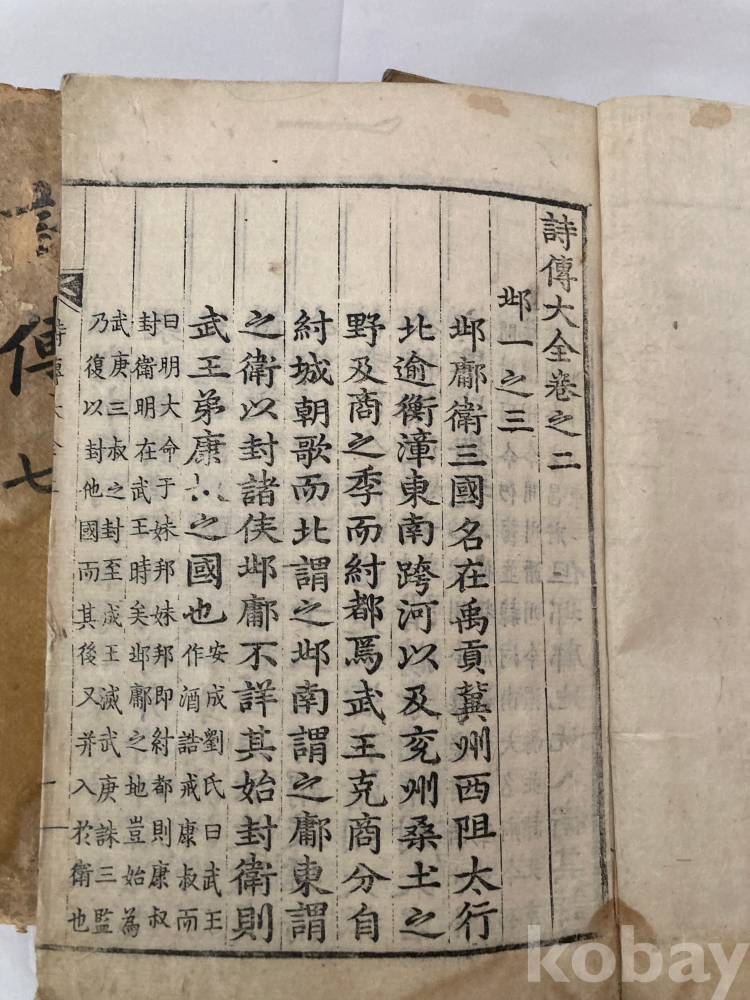 詩傳大全卷之二
邶一之三
邶鄘衛三國名在禹貢冀州西阻太行
北逾衡漳東南跨河以及兗州桑土之
野及商之季而紂都焉武王克商分自
紂城朝歌而北謂之邶南謂之鄘東謂
之衛以封諸侯邶鄘不詳其始封衛則
武王弟康之國也
安成劉氏曰武王
作酒誥戒康叔而
曰明大命于妹邦妹邦即紂都則康叔
封衛明在武王時矣邶鄘之地豈始為
武庚三叔之封至成王滅武庚誅三監
乃復以封他國而其後又并入於衛也
詩傳大全
傳七
kobay